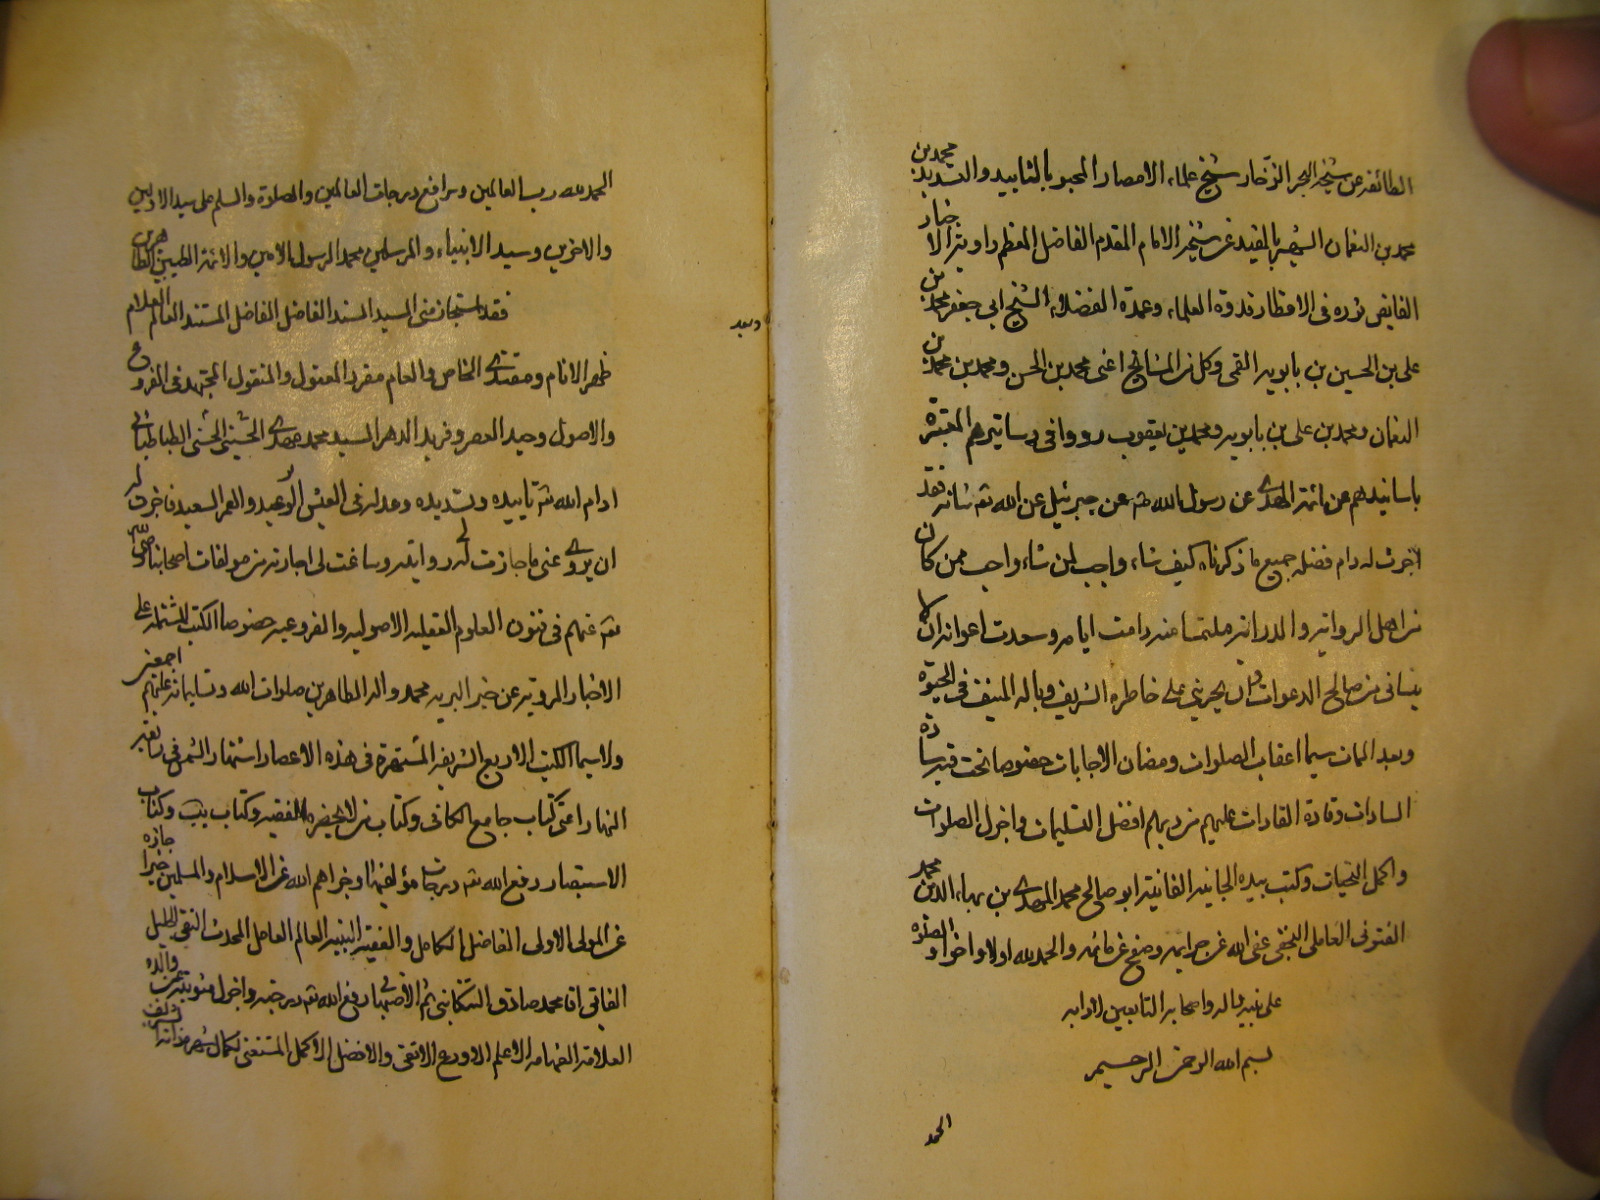 الطائفه عن شيخه البحر الزخار شيخ علماء الامصار المحبو بالتاييد والتسديد محمد بن
محمد بن النعمان الشهير بالمفيد عن شيخه الامام المقدم الفاضل المعظم راوية الاخبار
الفايض نوره في الاقطار قدوة العلماء وعمدة الفضلاء الشيخ ابي جعفر محمد بن
علي بن الحسين بن بابويه القمي وكل من المشايخ اعني محمد بن الحسن ومحمد بن محمد بن
النعمان ومحمد بن علي بن بابويه ومحمد بن يعقوب رووا في دساتيرهم المعتبرة
باسانيدهم عن ائمة الهدى عن رسول الله عن جبرئيل عن الله تعـ شانه فقد
اجزت له دام فضله جميع ما ذكرناه كيف شاء واحب لمن شاء واحب ممن كان
من اهل الرواية والدراية ملتمسا منه دامت ايامه وسعدت اعوانه ان لا
ينساني من صالح الدعوات وان يجريني على خاطره الشريف وباله المنيف في الحيوة
وبعد الممات سيما اعقاب الصلوات ومضان الاجابات خصوصا تحت قبة سادة
السادات وقادة القادات عليهم من ربهم افضل التسليمات واجزل الصلوات
واكمل التحيات وكتب بيده الجانية الفانية ابو صالح محمد المهدي بن بهاء الدين محمد
الفتوني العاملي النجفي عفى الله عن جرايمه وصفح عن مائمه والحمد لله اولا واخرا والصلوة
على نبيه واله واصحابه التابعين لادابه
بسم الله الرحمن الرحيم
الحمد
الحمد لله رب العالمين ورافع درجات العالمين والصلوة والسلم على سيد الاولين
والاخرين وسيد الانبياء والمرسلين محمد الرسول الامين والائمة الطيبين الطاهرين
وبعد فقد استجاز مني السيد السند الفاضل المستند العالم العلام
ظهر الانام ومقتدى الخاص والعام مقرر المعقول والمنقول المجتهد في الفروع
والاصول وحيد العصر وفريد الدهر السيد محمد مهدي الحسيني الحسني الطباطبائي
ادام الله تعـ تاييده وتسديده في العيش الرغيد والعمر السعيد فاجزت له
ان يروي عني ما جازت لي روايته وساغت لي اجازته من مولفات اصحابنا رضي الله
تعـ عنهم في فنون العلوم العقليه الاصوليه والفروعيه خصوصا الكتب المشتمله على
الاخبار المرويه عن خير البريه محمد واله الطاهرين صلوات الله وتسليماته عليهم اجمعين
ولا سيما الكتب الاربع الشريفه المشتهرة في هذه الاعصار اشتهار الشمس في رابعة
النهار اعني كتاب جامع الكافي وكتاب من لا يحضره الفقيه وكتاب يب وكتاب
الاستبصار رفع الله تعـ درجات مؤلفيها وجزاهم الله عن الاسلام والمسلمين خيرا
عن المولى الاولى الفاضل الكامل والفقيه النبيه العالم العامل المحدث التقي
اقا محمد صادق التنكابني ثم الاصبهاني رفع الله تعـ درجته واجزل مثوبته عن والده
العلامة الفهامه الاعلم الاورع الاتقى والافضل الاكمل المستغني بكمال